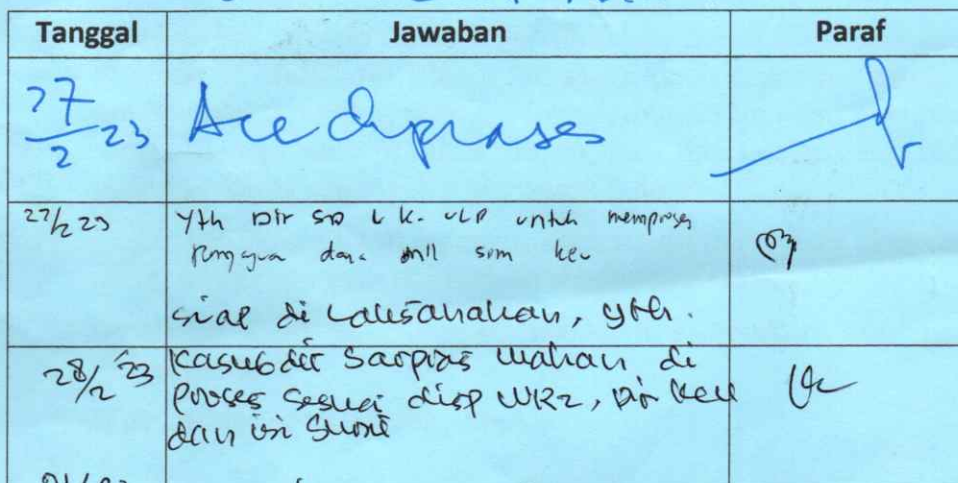 Tanggal Jawaban Paraf
27/2 23 Acc diproses
27/2 23 Yth Dir SD U K. ULP untuk memproses
dana sum keu
siap di Laksanakan, yth.
28/2 23 Kasubdit Sarpras mohon di
proses sesuai disp WR2, Dir Keu
dan isi Surat